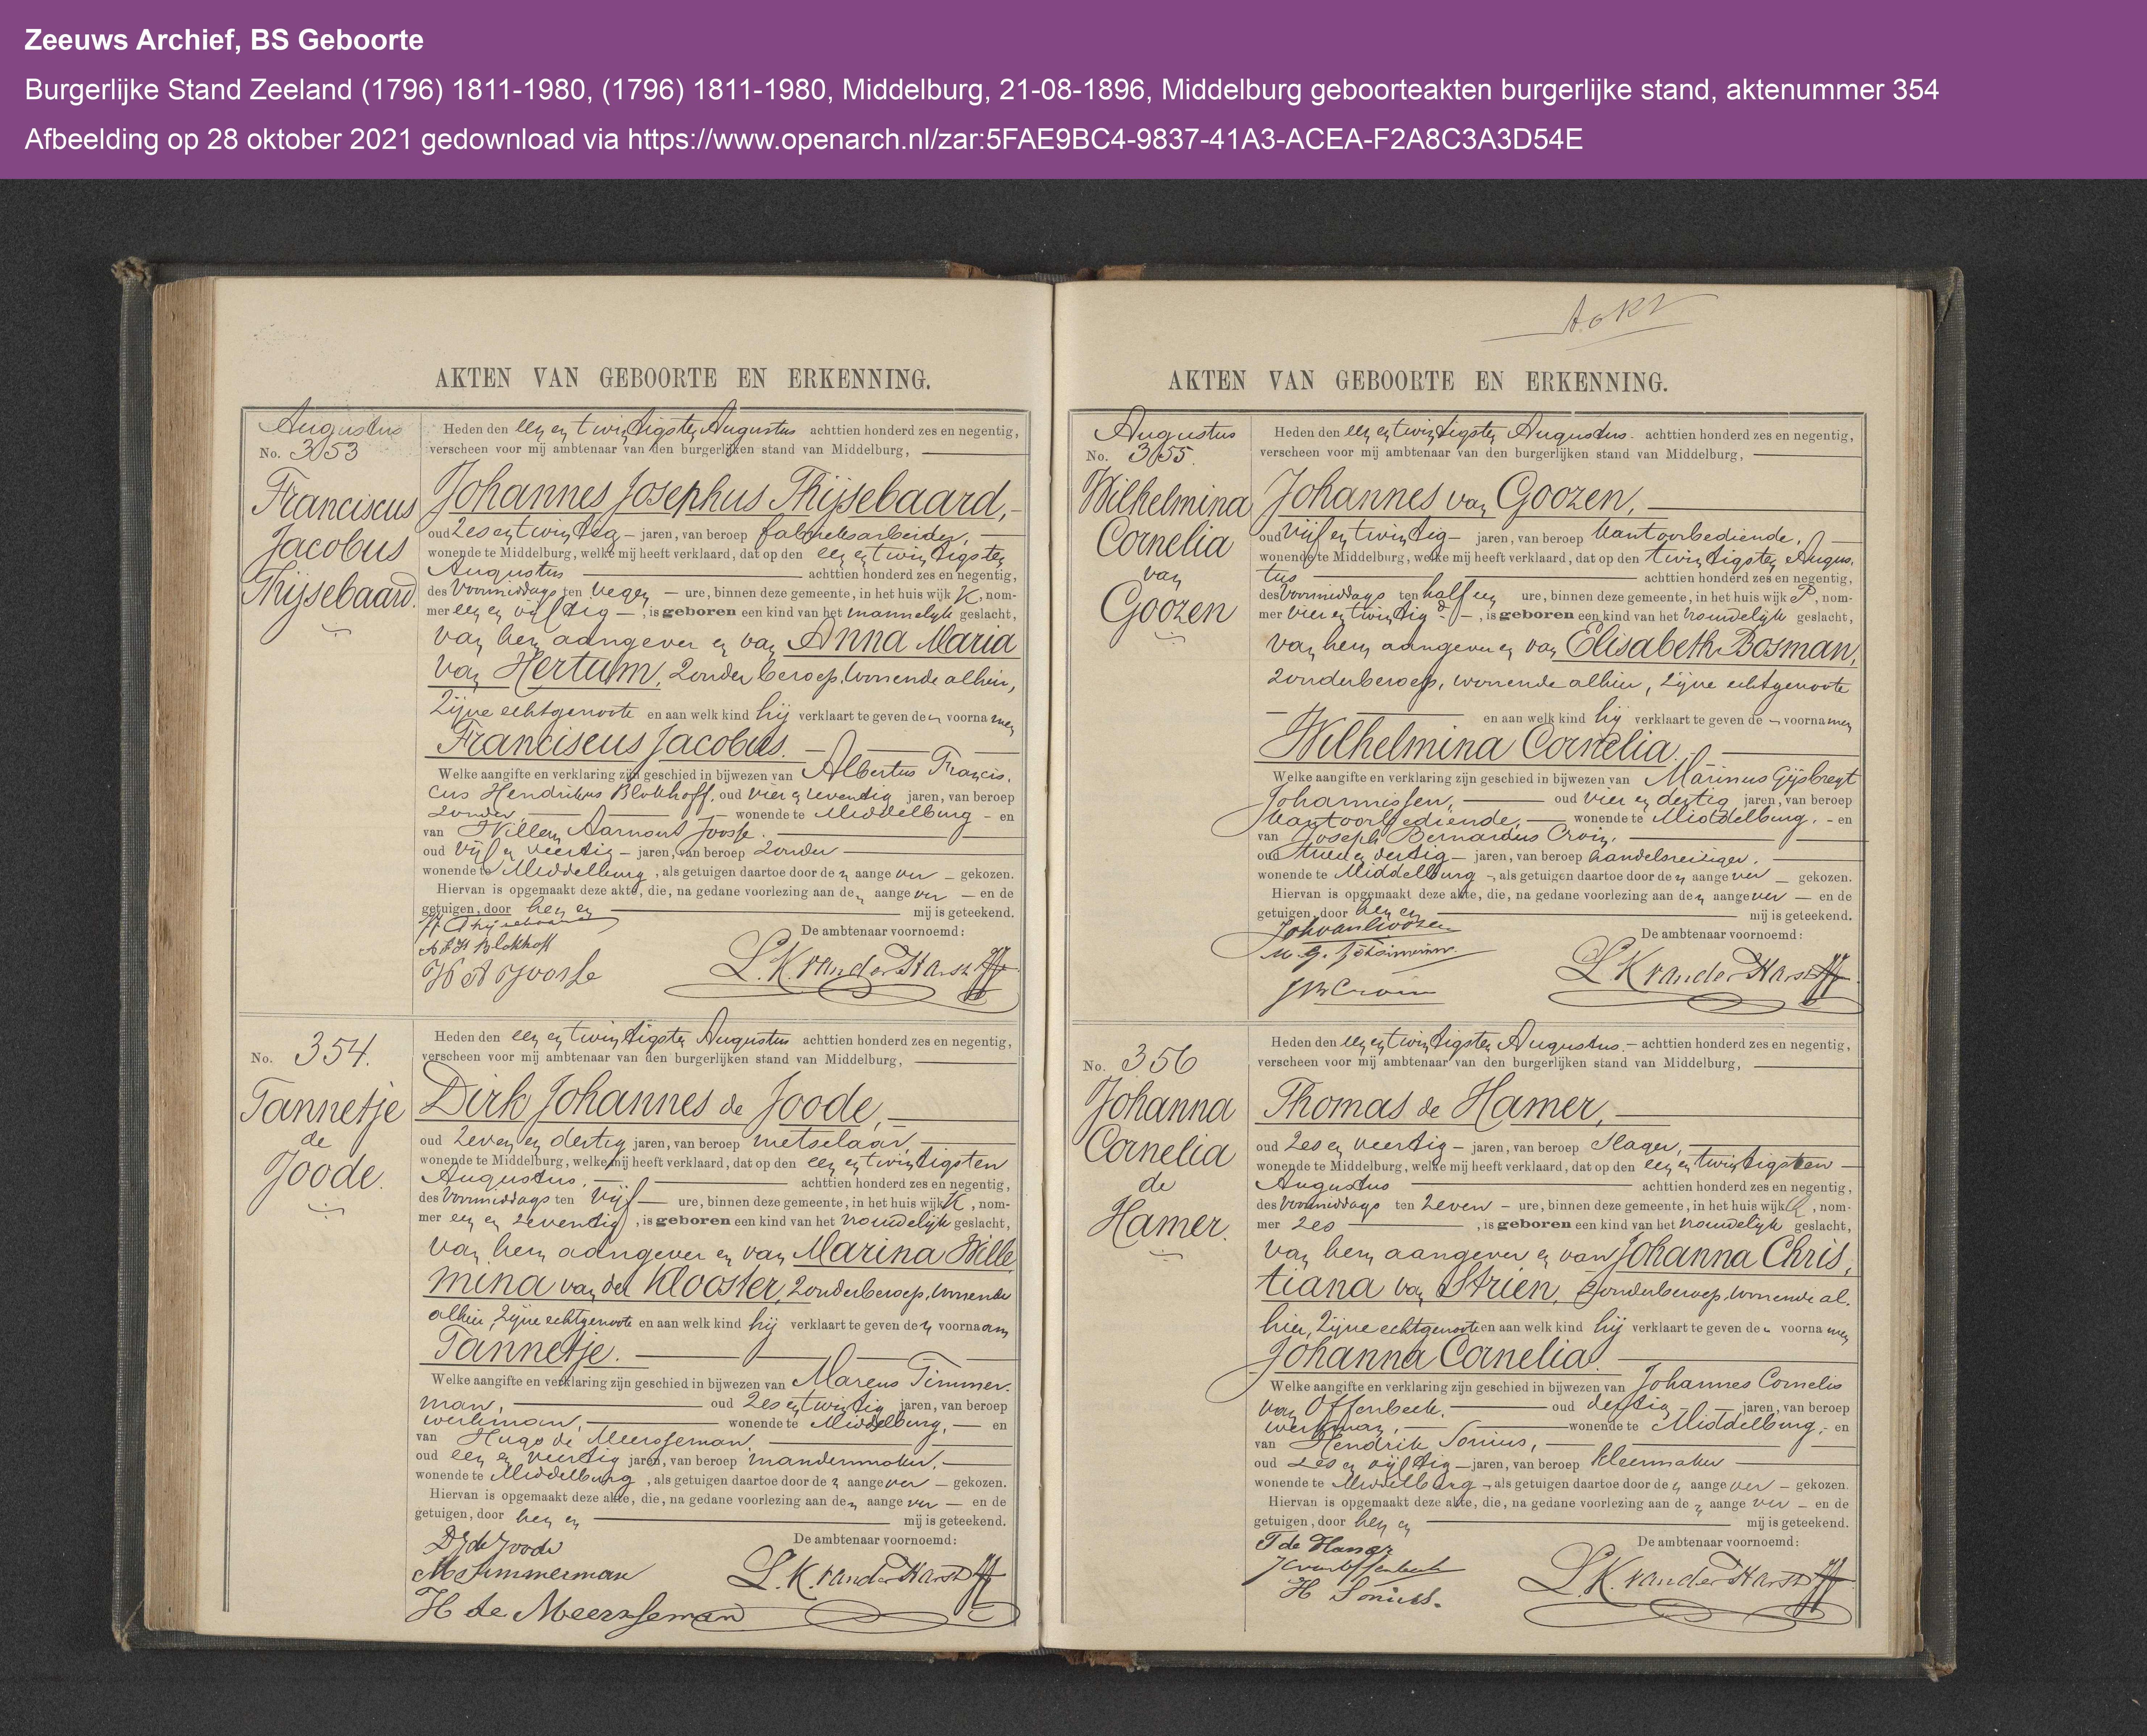 Zeeuws Archief, BS Geboorte
Burgerlijke Stand Zeeland (1796) 1811-1980, (1796) 1811-1980, Middelburg, 21-08-1896, Middelburg geboorteakten burgerlijke stand, aktenummer 354
Afbeelding op 28 oktober 2021 gedownload via https://www.openarch.nl/zar:5FAE9BC4-9837-41A3-ACEA-F2A8C3A3D54E
AKTEN VAN GEBOORTE EN ERKENNING.
Augustus
No. 353
Franciscus
Jacobus
Thijsebaard.
Heden den een en twintigsten Augustus achttien honderd zes en negentig,
verscheen voor mij ambtenaar van den burgerlijken stand van Middelburg,
Johannes Josephus Thijsebaard,
oud zes en twintig jaren, van beroep fabrieksarbeider,
wonende te Middelburg, welke mij heeft verklaard, dat op den een en twintigsten
Augustus achttien honderd zes en negentig,
des voormiddags ten negen ure, binnen deze gemeente, in het huis wijk K, nom-
mer een en vijftig, is geboren een kind van het mannelijk geslacht,
van hem aangever en van Anna Maria
van Hertum, zonder beroep, wonende alhier,
zijne echtgenoote en aan welk kind hij verklaart te geven den voornamen
Franciscus Jacobus.
Welke aangifte en verklaring zijn geschied in bijwezen van Albertus Francis-
cus Hendrikus Blokhoff, oud vier en zeventig jaren, van beroep
zonder, wonende te Middelburg - en
van Willem Aarnout Joosse.
oud vijf en veertig - jaren, van beroep zonder
wonende te Middelburg, als getuigen daartoe door den aangever gekozen.
Hiervan is opgemaakt deze akte, die, na gedane voorlezing aan den aangever - en de
getuigen, door hen en mij is geteekend.
De ambtenaar voornoemd:
A F H Blokhoff
W A Joosse
L. K. van der Harst
No. 354.
Tannetje
de
Joode.
Heden den een en twintigsten Augustus achttien honderd zes en negentig,
verscheen voor mij ambtenaar van den burgerlijken stand van Middelburg,
Dirk Johannes de Joode,
oud zeven en dertig jaren, van beroep metselaar,
wonende te Middelburg, welke mij heeft verklaard, dat op den een en twintigsten
Augustus, achttien honderd zes en negentig,
des voormiddags ten vijf ure, binnen deze gemeente, in het huis wijk K, nom-
mer een en zeventig, is geboren een kind van het vrouwelijk geslacht,
van hem aangever en van Marina Wille
mina van der Klooster, zonder beroep, wonende
alhier, zijne echtgenoote en aan welk kind hij verklaart te geven den voornaam
Tannetje.
Welke aangifte en verklaring zijn geschied in bijwezen van Marcus Timmer-
man, oud zes en twintig jaren, van beroep
werkman, wonende te Middelburg, en
van Hugo de Meersseman,
oud een en veertig jaren, van beroep mandenmaker,
wonende te Middelburg, als getuigen daartoe door den aangever - gekozen.
Hiervan is opgemaakt deze akte, die, na gedane voorlezing aan den aangever - en de
getuigen, door hen en mij is geteekend.
De ambtenaar voornoemd:
D J de Joode
M Timmerman
H de Meersseman
L. K. van der Harst
AKTEN VAN GEBOORTE EN ERKENNING.
Augustus
No. 355.
Wilhelmina
Cornelia
van
Goozen
Heden den een en twintigsten Augustus achttien honderd zes en negentig,
verscheen voor mij ambtenaar van den burgerlijken stand van Middelburg,
Johannes van Goozen,
oud vijf en twintig - jaren, van beroep kantoorbediende,
wonende te Middelburg, welke mij heeft verklaard, dat op den twintigsten Augus-
tus achttien honderd zes en negentig,
des voormiddags ten half een ure, binnen deze gemeente, in het huis wijk P, nom-
mer vier en twintig d, is geboren een kind van het vrouwelijk geslacht,
van hem aangever en van Elisabeth Bosman,
zonder beroep, wonende alhier, zijne echtgenoote
en aan welk kind hij verklaart te geven de voornamen
Wilhelmina Cornelia.
Welke aangifte en verklaring zijn geschied in bijwezen van Marinus Gijsbregt
Johannissen, oud vier en dertig jaren, van beroep
kantoorbediende, wonende te Middelburg, - en
van Joseph Bernardus Croin,
oud twee en dertig - jaren, van beroep handelsreiziger,
wonende te Middelburg, als getuigen daartoe door den aangever gekozen.
Hiervan is opgemaakt deze akte, die, na gedane voorlezing aan den aangever - en de
getuigen, door hen en mij is geteekend.
De ambtenaar voornoemd:
Joh van Goozen
M. G. Johannissen.
J B Croin
L. K van der Harst
No. 356
Johanna
Cornelia
de
Hamer.
Heden den een en twintigsten Augustus. - achttien honderd zes en negentig,
verscheen voor mij ambtenaar van den burgerlijken stand van Middelburg,
Thomas de Hamer,
oud zes en veertig - jaren, van beroep slager,
wonende te Middelburg, welke mij heeft verklaard, dat op den een en twintigsten
Augustus achttien honderd zes en negentig,
des voormiddags ten zeven - ure, binnen deze gemeente, in het huis wijk, nom-
mer zes, is geboren een kind van het vrouwelijk geslacht,
van hem aangever en van Johanna Chris-
tiana van Strien, zonder beroep, wonende al-
hier, zijne echtgenoote en aan welk kind hij verklaart te geven de voornamen
Johanna Cornelia.
Welke aangifte en verklaring zijn geschied in bijwezen van Johannes Cornelis
van Offenbeek, oud dertig jaren, van beroep
werkman, wonende te Middelburg, - en
van Hendrik Sonius,
oud zes en vijftig - jaren, van beroep kleermaker
wonende te Middelburg, als getuigen daartoe door den aangever - gekozen.
Hiervan is opgemaakt deze akte, die, na gedane voorlezing aan de aangever - en de
getuigen, door hen en mij is geteekend.
De ambtenaar voornoemd:
T de Hamer
J C van Offenbeek
H Sonius.
L. K. van der Harst